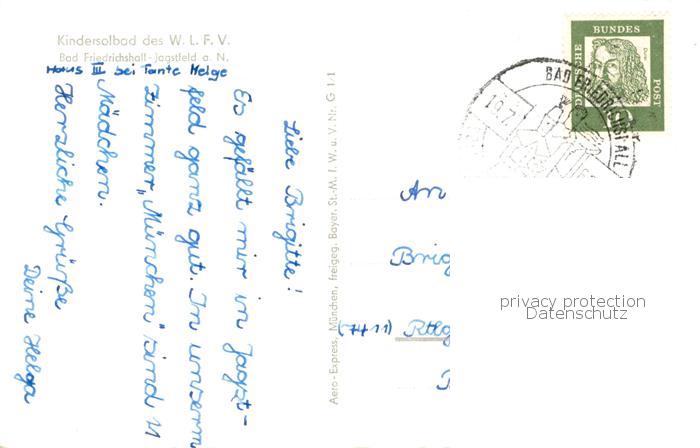 Kindersolbad des W. L. F. V.
Bad Friedrichshall-Jagstfeld a. N.
Haus III bei Tante Helge
Liebe Brigitte!
Es gefällt mir in Jagst-
feld ganz gut. In unserm
Zimmer „München" sind 11
Mädchen.
Herzliche Grüße
Deine Helga
Aero-Express, München, freigeg. Bayer. St.-M. f. W. u. V. Nr. G 1-1
An
Brig
(7411) Rtlg
DEUTSCHE BUNDES POST
Dürer
BAD FRIEDRICHSHALL
10.7.
privacy protection
Datenschutz